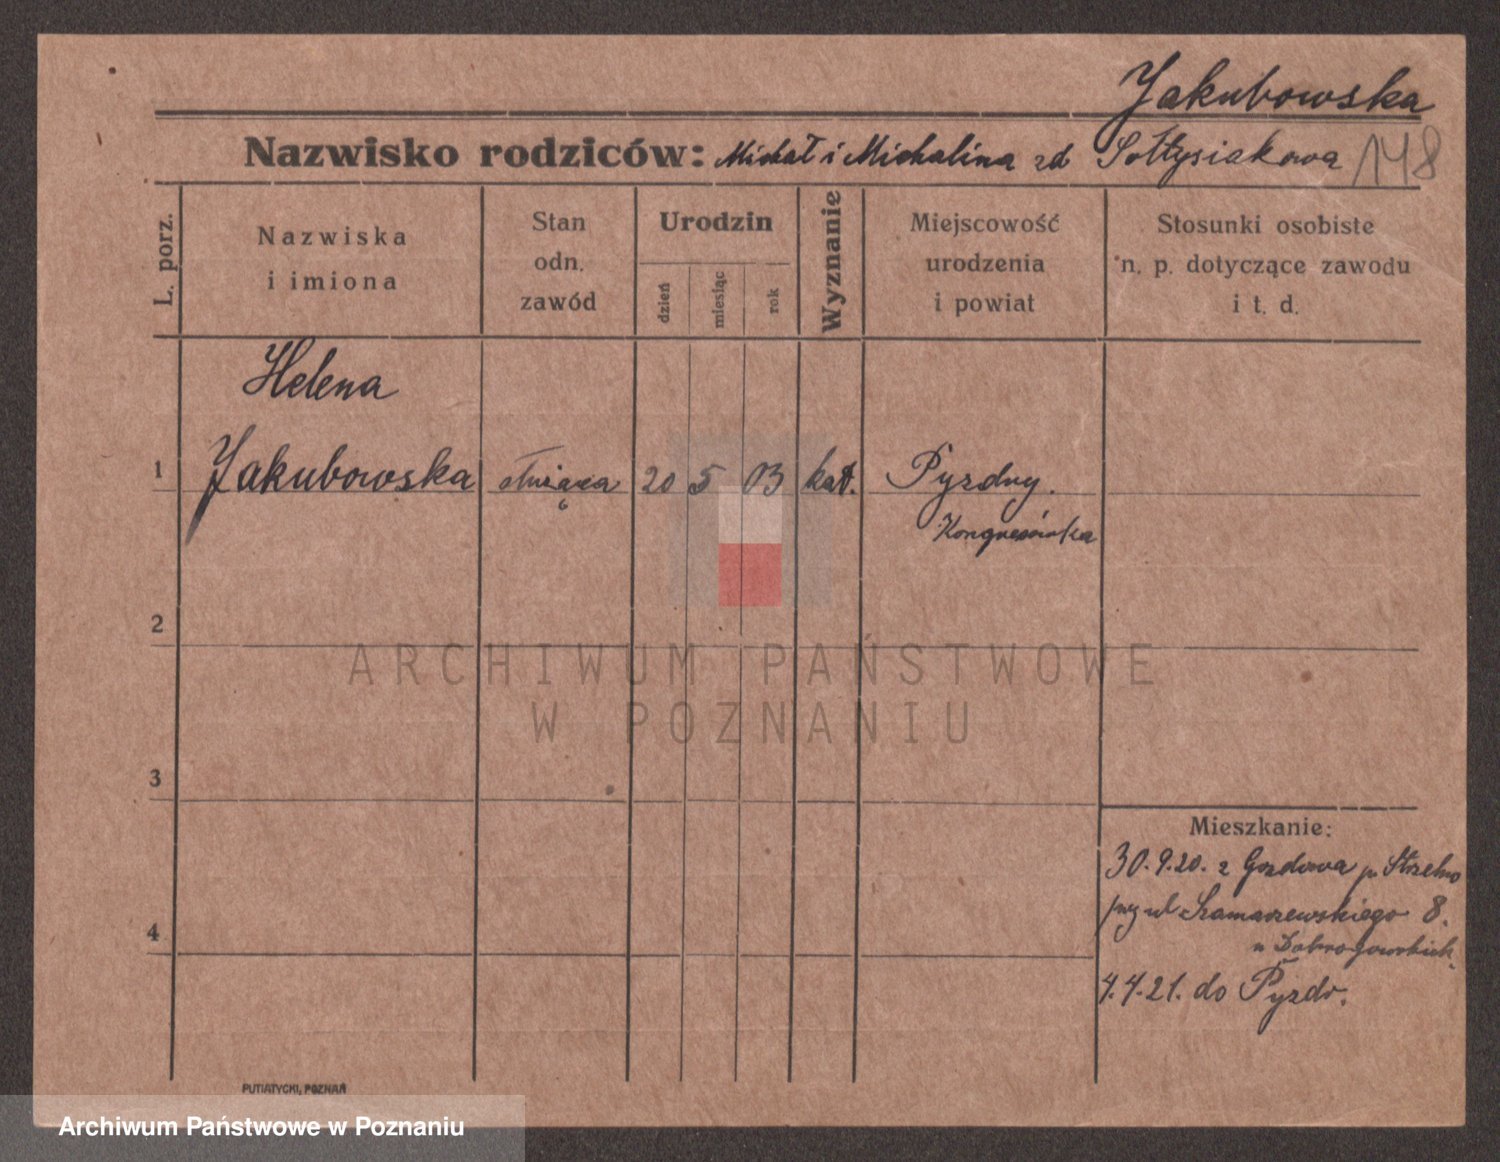 Jakubowska
Nazwisko rodziców: Michał i Michalina zd Sołtysiakowa 148
L. porz.
Nazwiska
i imiona
Stan
odn.
zawód
Urodzin
dzień
miesiąc
rok
Wyznanie
Miejscowość
urodzenia
i powiat
Stosunki osobiste
n. p. dotyczące zawodu
i t. d.
Helena
1 Jakubowska służąca 20 5 03 kat. Pyzdry.
Kongresówka
2
ARCHIWUM PAŃSTWOWE
W POZNANIU
3
Mieszkanie:
30.9.20. z Gozdowa p. Strzelno
przy ul. Szamarzewskiego 8.
u Dobrogowskich.
4
4.4.21. do Pyzdr.
PUTIATYCKI, POZNAŃ
Archiwum Państwowe w Poznaniu